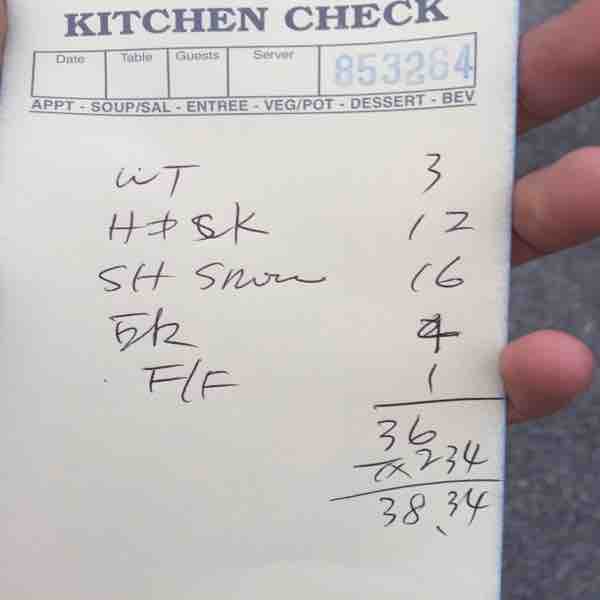 KITCHEN CHECK
Date Table Guests Server 853264
APPT - SOUP/SAL - ENTREE - VEG/POT - DESSERT - BEV
WT 3
12
SH 16
4
F/F 1
36
TX 234
38.34